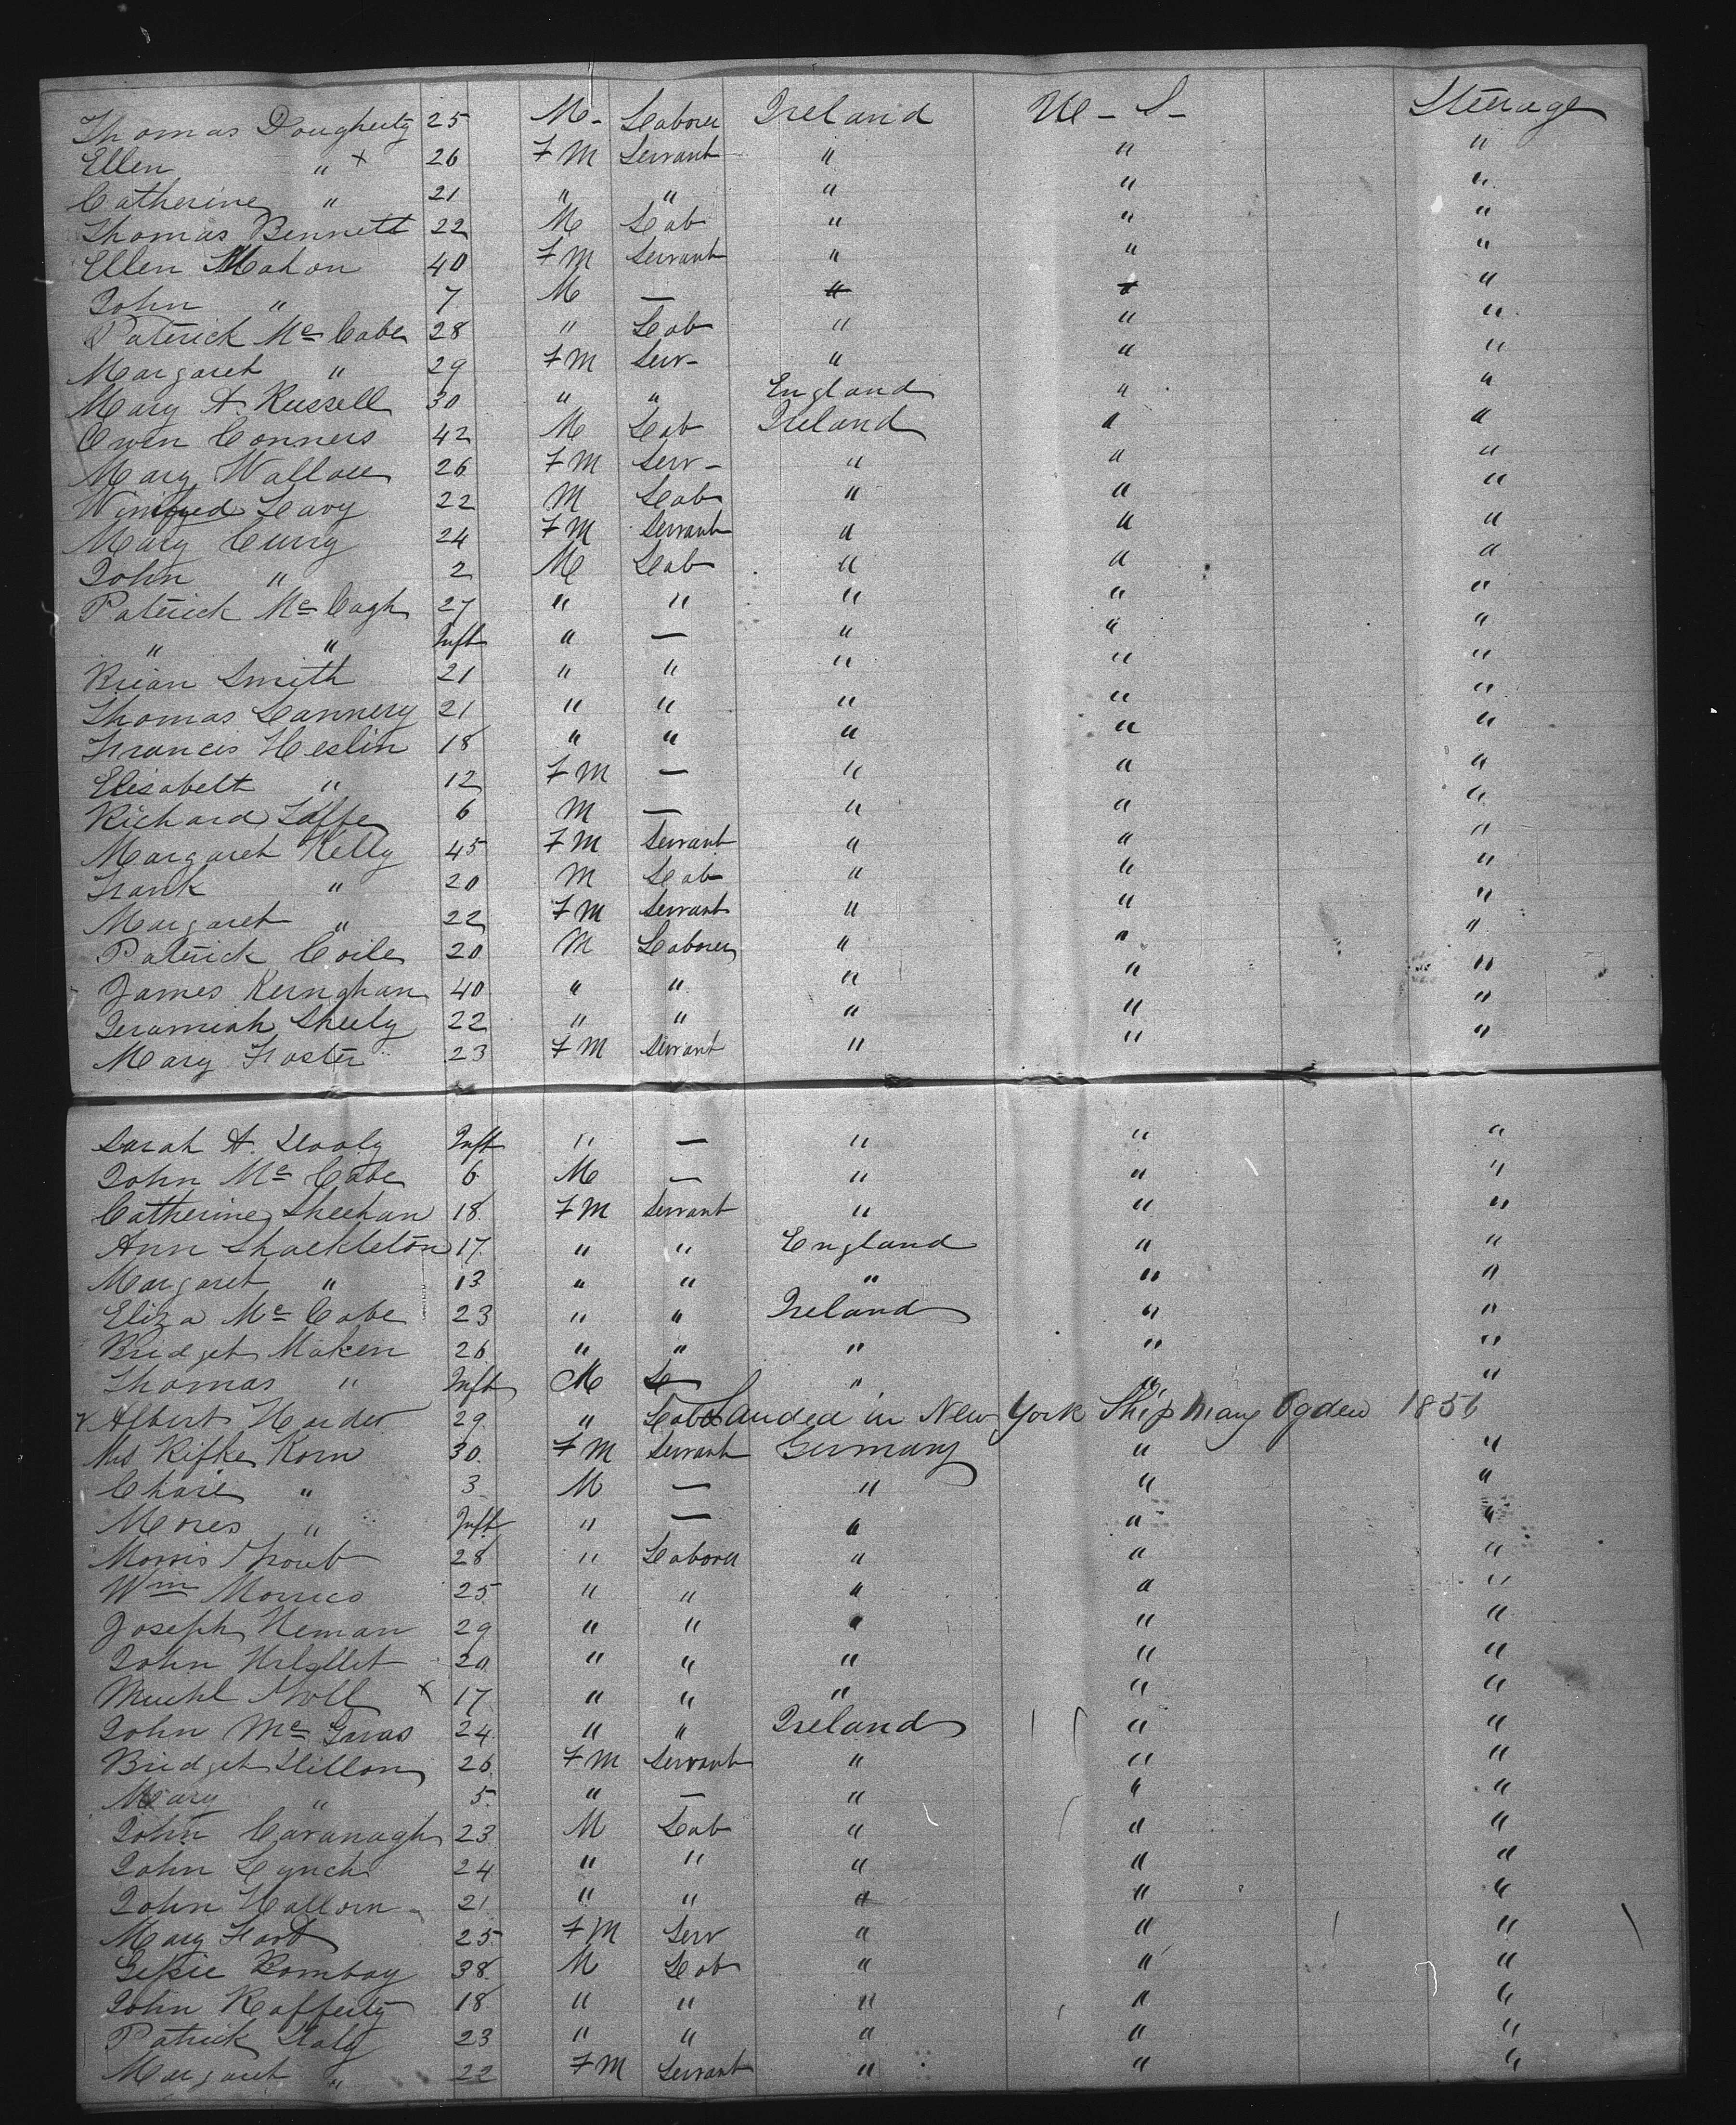 Thomas Dougherty 25 M - Laborer Ireland U - S - Steerage
Ellen " x 26 FM Servant " " "
Catherine " 21 " " " " "
Thomas Bennett 22 M Lab " " "
Ellen Mahon 40 FM Servant " " "
John " 7 M — " " "
Patrick Mc Cabe 28 " Lab " " "
Margaret " 29 FM Serv - " " "
Mary A. Russell 30 " " England " "
Owen Conners 42 M Lab Ireland " "
Mary Wallace 26 FM Serv - " " "
Winifred Leavy 22 M Lab " " "
Mary Curry 24 FM Servant " " "
John " 2 M Lab " " "
Patrick Mc Cagh 27 " " " " "
" " Inft " — " " "
Brian Smith 21 " " " " "
Thomas Lannery 21 " " " " "
Francis Heslin 18 " " " " "
Elisabett " 12 FM — " " "
Richard 6 M — " " "
Margaret Kelly 45 FM Servant " " "
Frank " 20 M Lab " " "
Margaret " 22 FM Servant " " "
Patrick Coile 20 M Laborer " " "
James Kernghan 40 " " " " "
Jeramiah Sheely 22 " " " " "
Mary Foster 23 FM Servant " " "
Sarah A. Dooly Inft " — " " "
John Mc Cabe 6 M — " " "
Catherine Sheehan 18 FM Servant " " "
Ann Shackleton 17 " " England " "
Margaret " 13 " " " " "
Eliza Mc Cabe 23 " " Ireland " "
Bridget Maken 26 " " " " "
Thomas " Inft M " " "
x Albert Harder 29 " Lab Landed in New York Ship Mary Ogden 1856
Mrs Rifke Korn 30 FM Servant Germany " "
Chaie " 3 M — " " "
Moses " Inft " — " " "
Morris 28 " Laborer " " "
Wm Morries 25 " " " " "
Joseph Neman 29 " " " " "
John 20 " " " " "
x 17 " " " " "
John Mc Garas 24 " " Ireland " "
Bridget Dillon 26 FM Servant " " "
Mary " 5 " — " " "
John Cavanagh 23 M Lab " " "
John Lynch 24 " " " " "
John Hallorn 21 " " " " "
Mary Hart 25 FM Serv " " "
Bombay 38 M Lab " " "
John Rafferty 18 " " " " "
Patrick Daly 23 " " " " "
Margaret " 22 FM Servant " " "